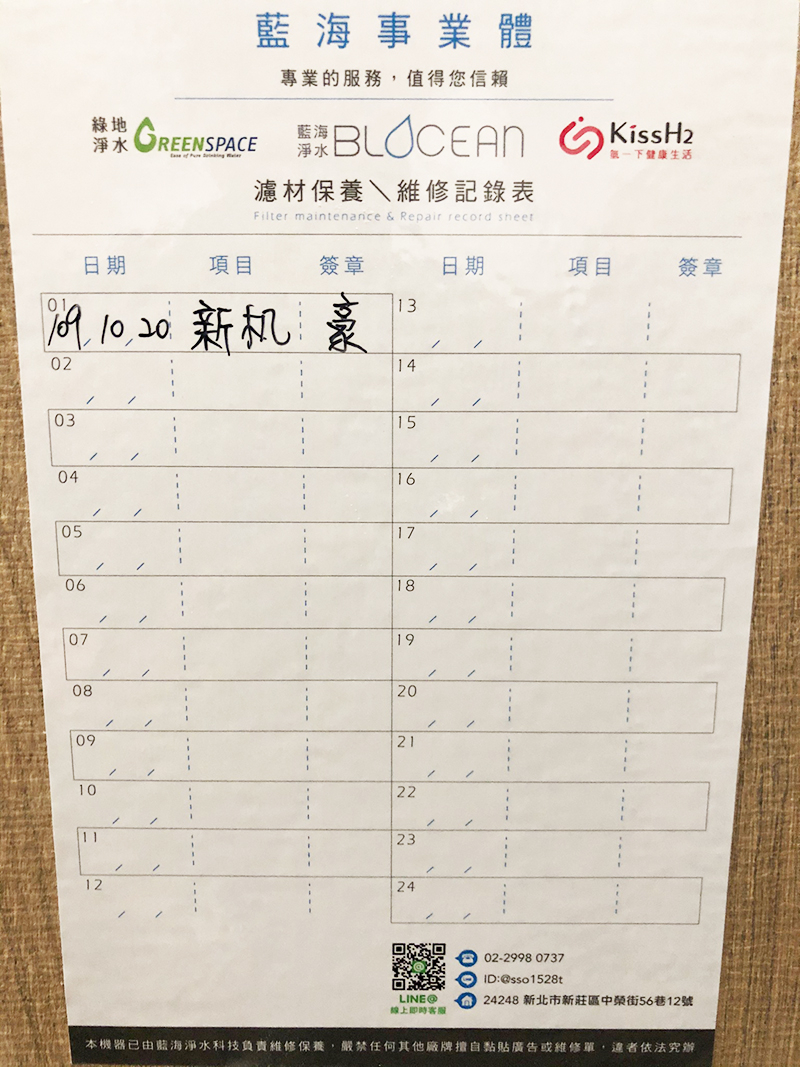 藍海事業體
專業的服務,值得您信賴
綠地淨水 GREENSPACE Ease of Pure Drinking Water
藍海淨水 BLOCEAN
KissH2 氫一下健康生活
濾材保養\維修記錄表
Filter maintenance & Repair record sheet
日期 項目 簽章 日期 項目 簽章
01 109/10/20 新机 豪 13 / /
02 / / 14 / /
03 / / 15 / /
04 / / 16 / /
05 / / 17 / /
06 / / 18 / /
07 / / 19 / /
08 / / 20 / /
09 / / 21 / /
10 / / 22 / /
11 / / 23 / /
12 / / 24 / /
02-2998 0737
ID:@sso1528t
LINE@
線上即時客服
24248 新北市新莊區中榮街56巷12號
本機器已由藍海淨水科技負責維修保養,嚴禁任何其他廠牌擅自黏貼廣告或維修單,違者依法究辦